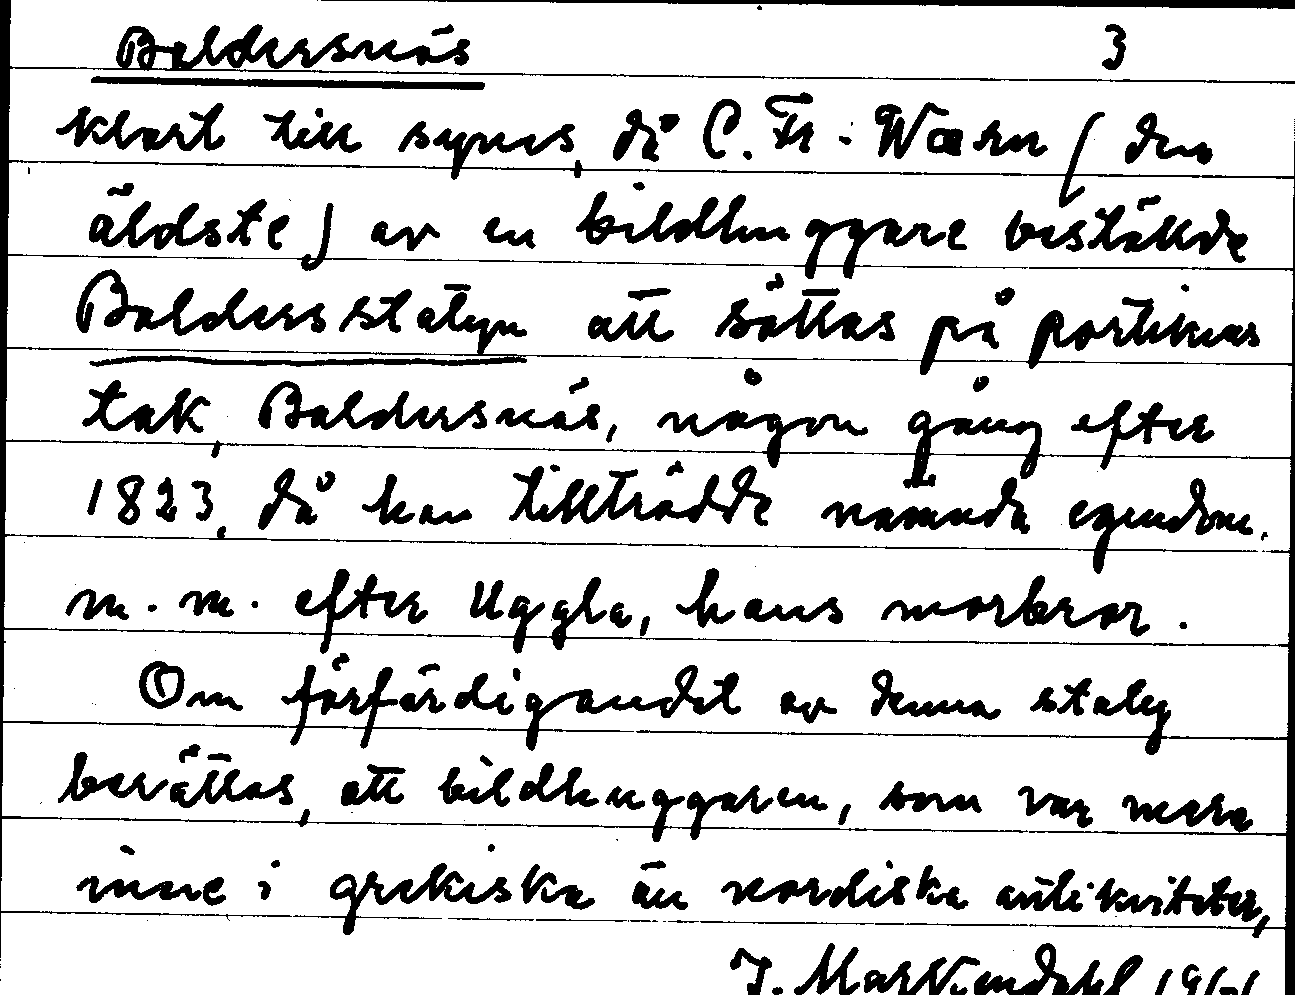 Baldersnäs 3
klart till synes, då C. Fr. Wærn (den
äldste) av en bildhuggare beställde
Baldersstatyn att sättas på portikus
tak, Baldersnäs, någon gång efter
1823, då han tillträdde nämnda egendom.
m. m. efter Uggla, hans morbror.
Om förfärdigandet av denna staty
berättas, att bildhuggaren, som var mera
inne i grekiska än nordiska antikviteter,
J.